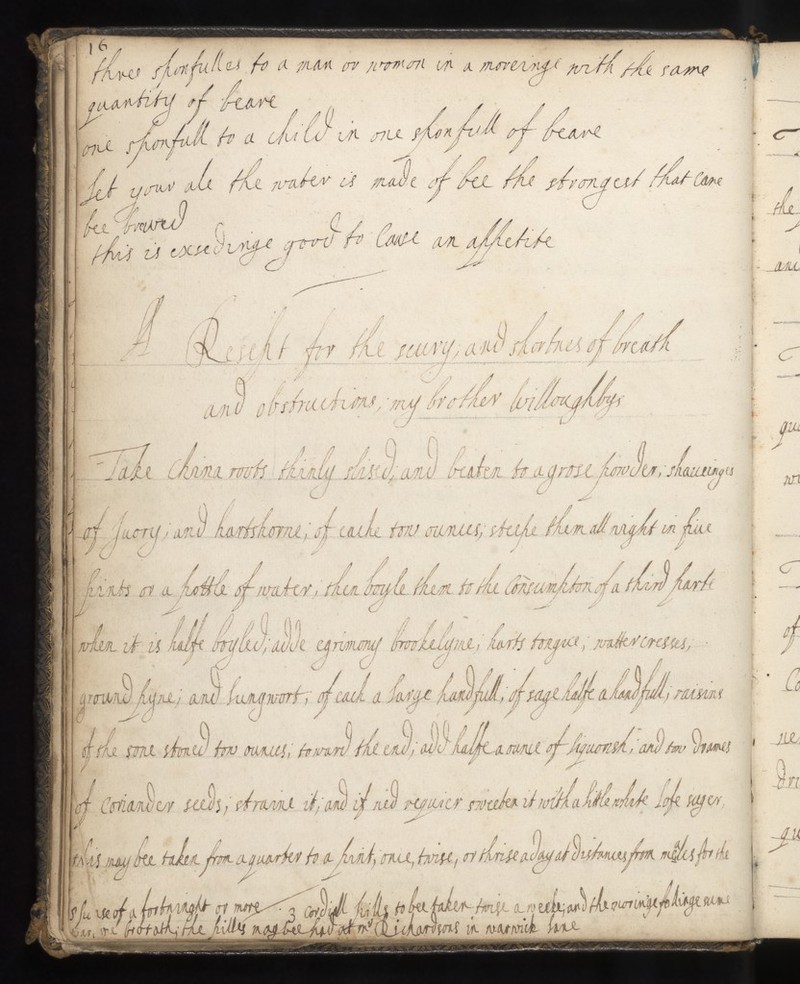 16
three sponfulles to a man or womon in a moreinge with the same
quantity of beare
one sponfull to a child in one sponfull of beare
let your ale the water is made of bee the strongest that Cane
bee brwed
this is exsedinge good to Cause an appetite
A Resept for the scurvy, and shortnes of breath
and obstructions, my brother Willoughbys
Take China roots thinly slised, and beaten to a grose powder, shaueings
of Juory, and hartshorne, of eache tow ounces, steepe them all night in fiue
pints or a pottle of water, then boyle them to the Consumpton of a third parte
when it is halfe boyled, adde egrimony brookelyme, harts tongue, watter cresses,
ground pyne, and lungwort, of each a large handfull, of sage halfe a handfull, raisins
of the sone stoned tow ounces, toward the end, add halfe a ounce of liquorish, and tow drames
of Coriander seeds, straine it, and if ned requier sweeten it with a little white lofe suger,
this may bee taken from a quarter to a pint, once, twise, or thrise a day at distances from meles for the
space of a fortnight or more 3 Cordiall pills to bee taken twise a weeke, and the morninge folinge sume
broth, the pilles may bee had at mr Richardsons in warwick lane
the
and
of